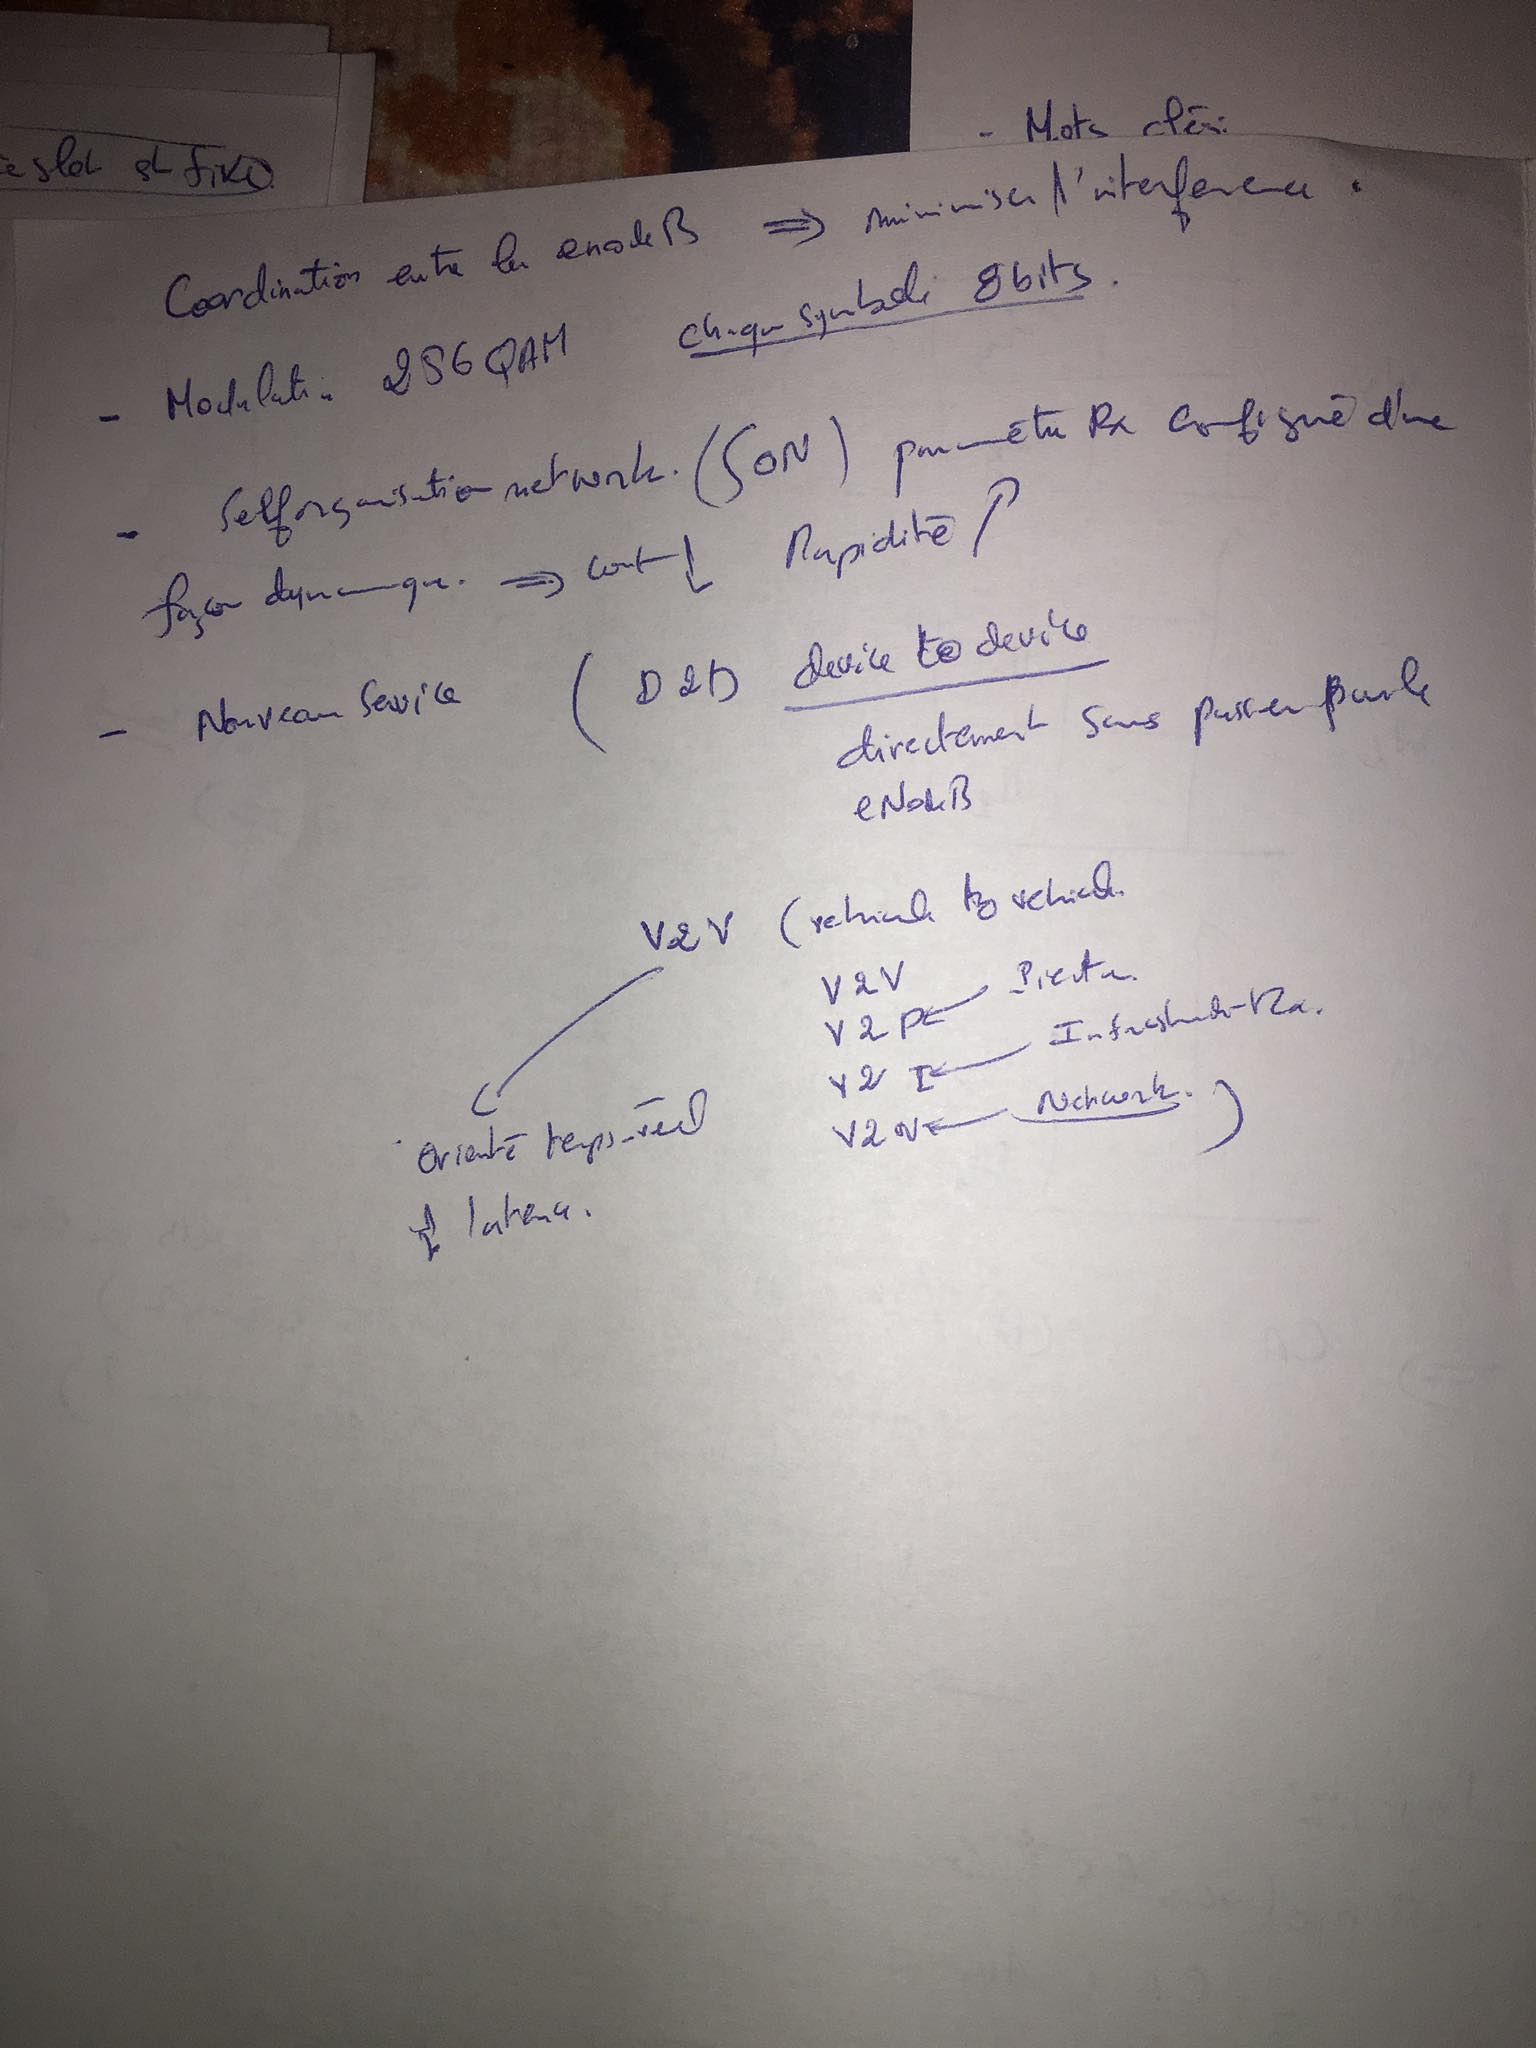 - Mots clés:
e slot st fixe
Coordination entre les enodeB ⇒ minimiser l'interference.
- Modulation 256QAM chaque symbole 8bits.
- Selforganisation network. (SON) paramètre Rx configuré d'une
façon dynamique. ⇒ cout ↓ Rapidité ↗
- Nouveau Service ( D2D device to device
directement sans passer par le
eNodeB
V2V (vehicule to vehicule
V2V
V2P ← Pieton.
V2I ← Infrastructure Rx.
V2N ← Network. )
Orienté temps-réel
↓ latence.